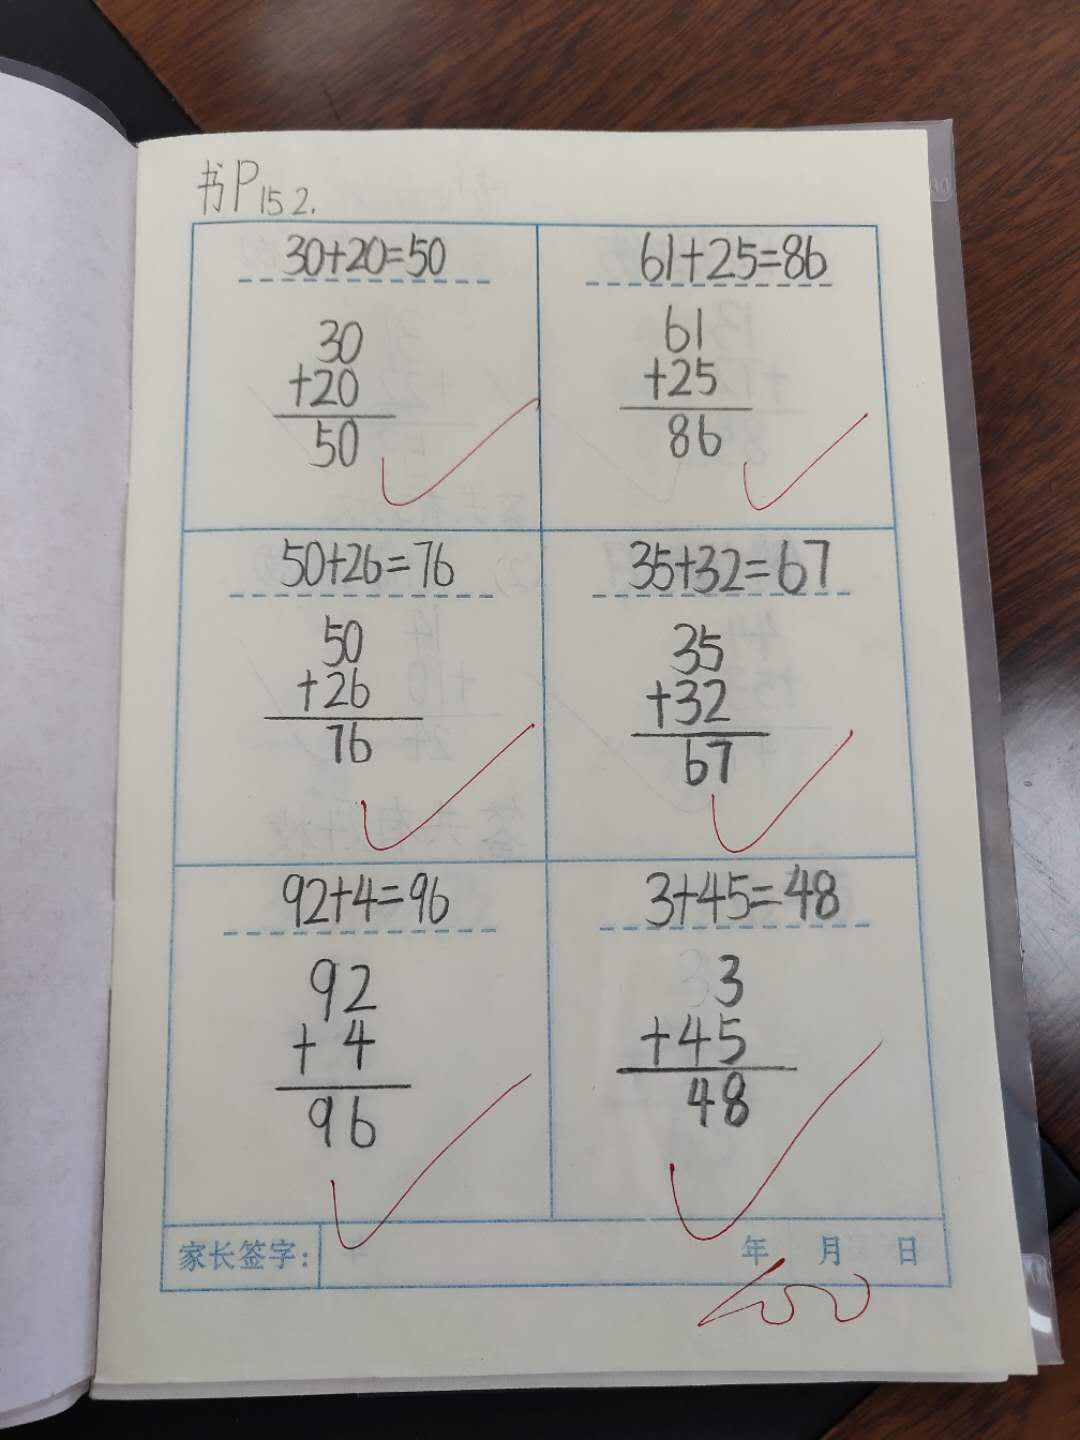 书P15 2.
30+20=50
30
+20
50
61+25=86
61
+25
86
50+26=76
50
+26
76
35+32=67
35
+32
67
92+4=96
92
+ 4
96
3+45=48
3
+45
48
家长签字:
年 月 日
100